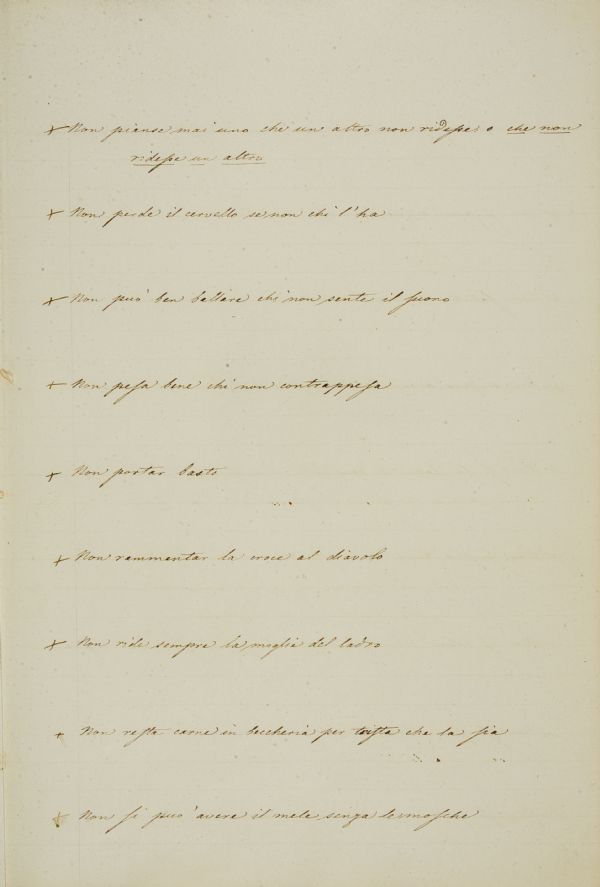 + Non pianse mai uno che un altro non ridesse; o che non
ridesse un altro
+ Non perde il cervello se non chi l'ha
+ Non può ben ballare chi non sente il suono
+ Non pesa bene chi non contrappesa
+ Non portar basto
+ Non rammentar la croce al diavolo
+ Non ride sempre la moglie del ladro
+ Non resta carne in beccheria per trista che la sia
+ Non si può avere il mele senza le mosche